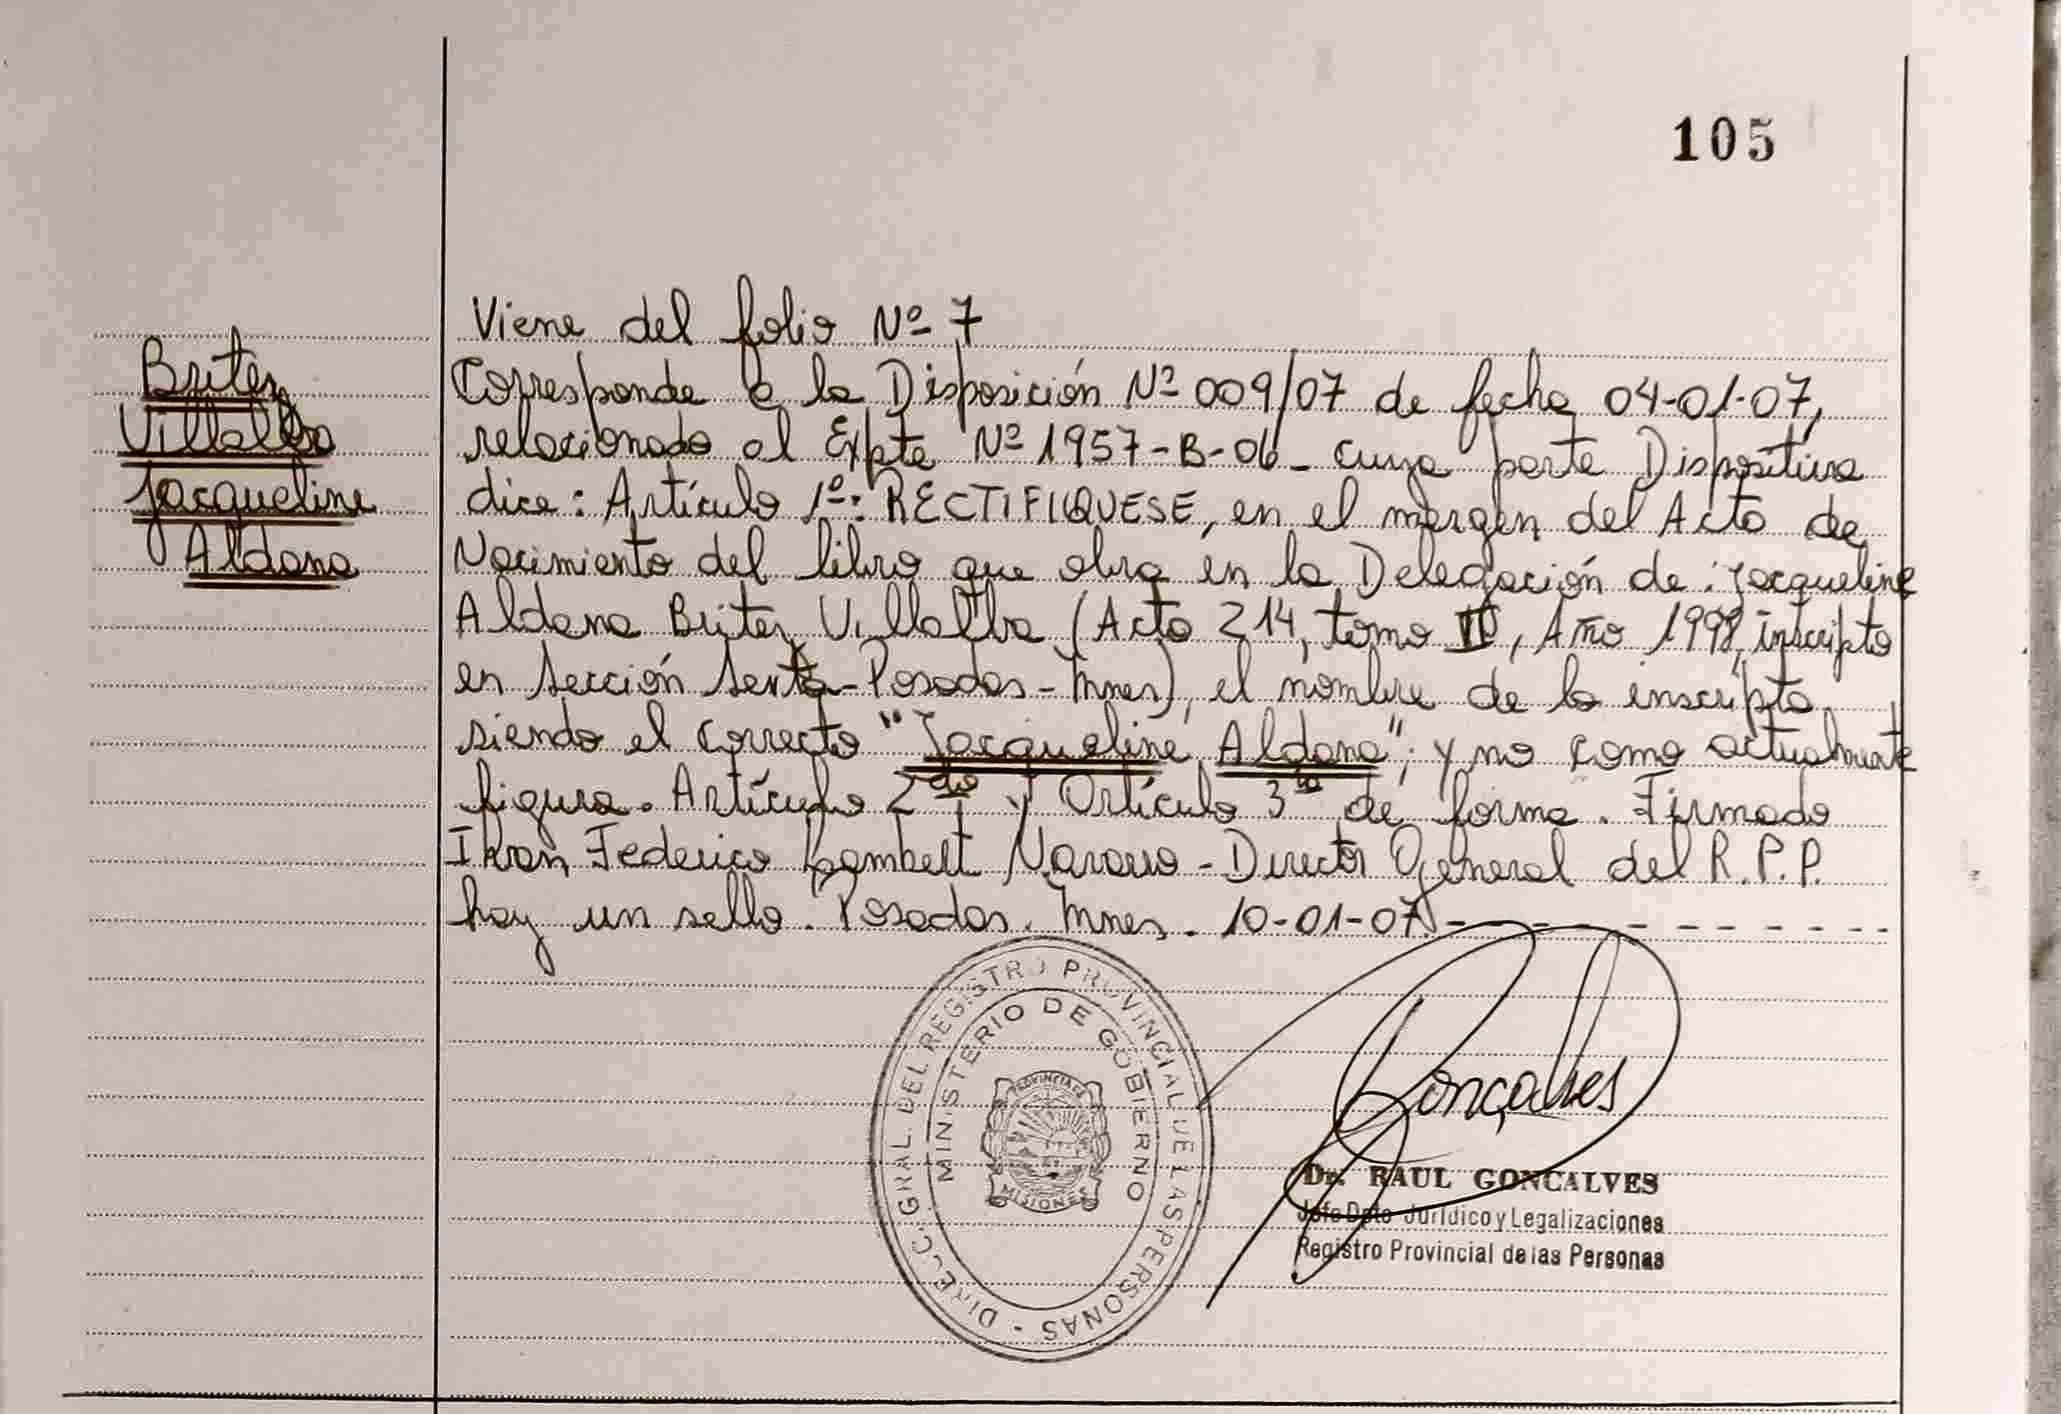 105
Briter
Villalba
Jacqueline
Aldana
Viene del folio Nº 7
Corresponde a la Disposición Nº 009/07 de fecha 04-01-07,
relacionado al Expte Nº 1957-B-06- cuya parte Dispositiva
dice: Artículo 1º: RECTIFIQUESE, en el margen del Acta de
Nacimiento del libro que obra en la Delegación de: Jacqueline
Aldana Briter Villalba (Acta 214, tomo II, Año 1998, inscripta
en Sección Sexta-Posadas-Mnes), el nombre de la inscripta
siendo el correcto "Jacqueline Aldana"; y no como actualmente
figura. Artículo 2do y Artículo 3ro de forma. Firmado
Federico Lambert - Director General del R.P.P.
hay un sello. Posadas. Mnes. 10-01-07.- - - - - - - - -
DIRECC. GRAL. DEL REGISTRO PROVINCIAL DE LAS PERSONAS -
MINISTERIO DE GOBIERNO
PROVINCIA DE
MISIONES
Gonçalves
Dr. RAUL GONCALVES
Jefe Dpto Jurídico y Legalizaciones
Registro Provincial de las Personas